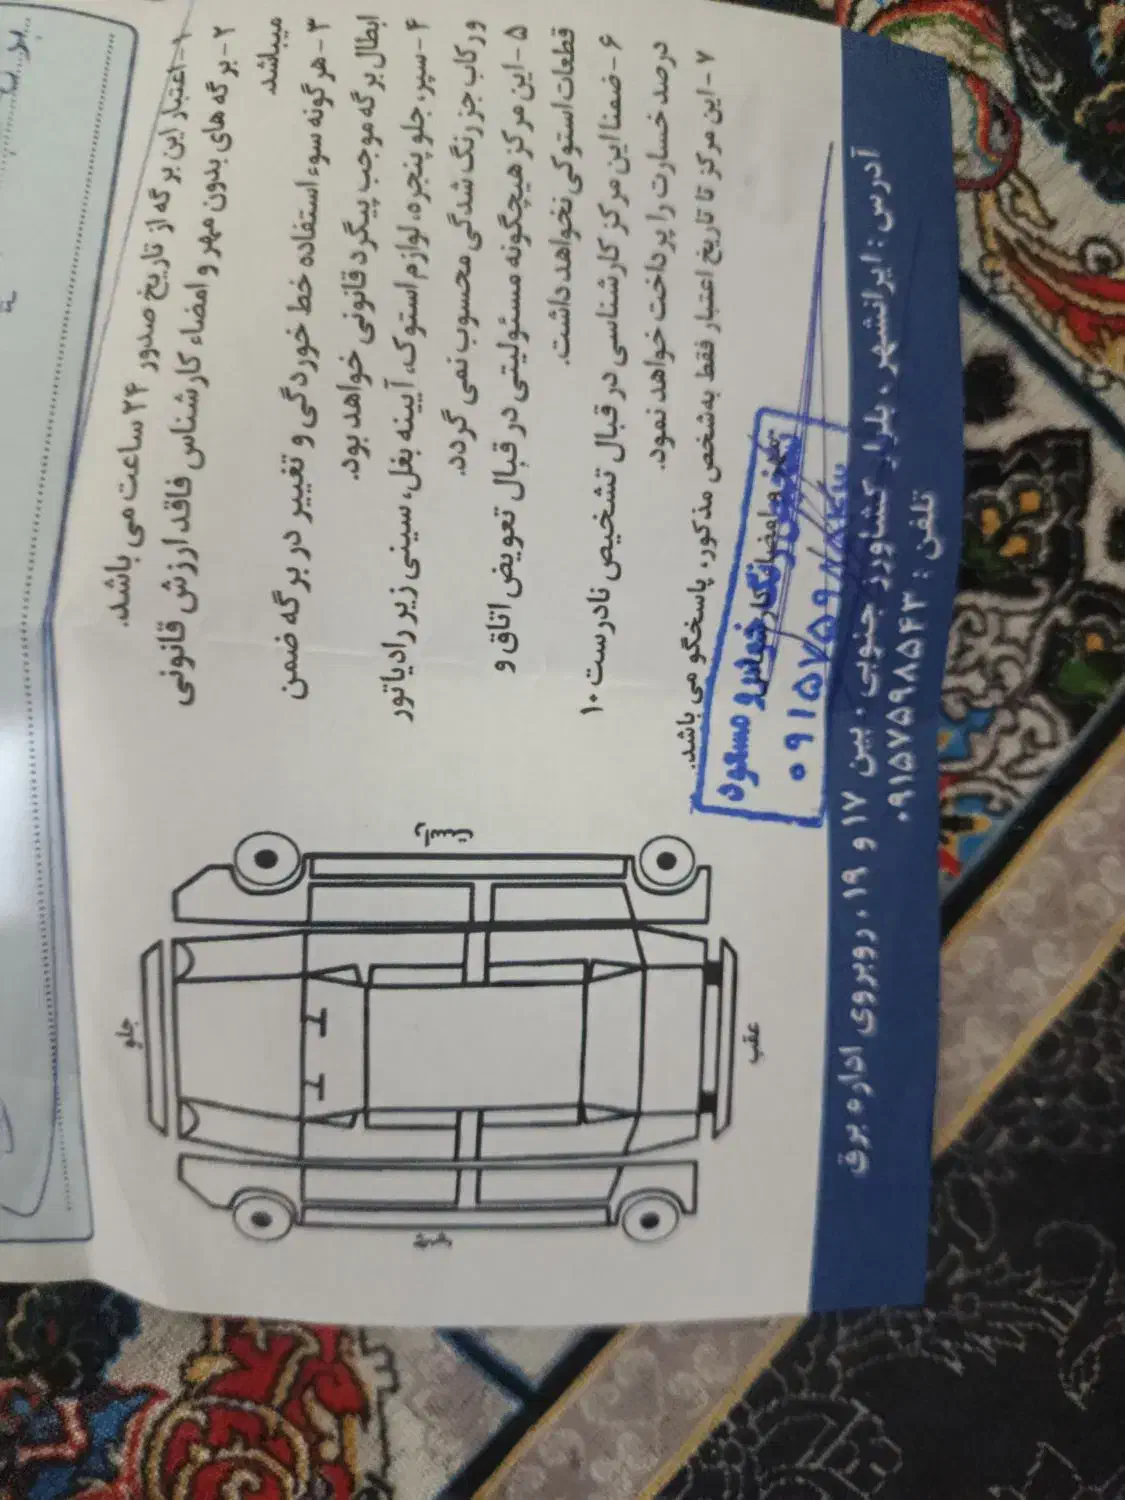 ۱- اعتبار این برگه از تاریخ صدور ۲۴ ساعت می باشد.
۲- برگه های بدون مهر و امضاء کارشناس فاقد ارزش قانونی
میباشد
۳- هرگونه سوء استفاده خط خوردگی و تغییر در برگه ضمن
ابطال برگه موجب پیگرد قانونی خواهد بود.
۴- سپر، جلو پنجره، لوازم استوک، آیینه بغل، سینی زیر رادیاتور
و رکاب جز رنگ شدگی محسوب نمی گردد.
۵- این مرکز هیچگونه مسئولیتی در قبال تعویض اتاق و
قطعات استوکی نخواهد داشت.
۶- ضمنا این مرکز کارشناسی در قبال تشخیص نادرست ۱۰
درصد خسارت را پرداخت خواهد نمود.
۷- این مرکز تا تاریخ اعتبار فقط به شخص مذکور، پاسخگو می باشد.
مهر و امضا کارشناس
تشخیص رنگ خودرو مسعود
جلو
عقب
آدرس : ایرانشهر ، بلوار کشاورز جنوبی ، بین ۱۷ و ۱۹ ، روبروی اداره برق
تلفن : ۰۹۱۵۷۵۹۸۵۴۳